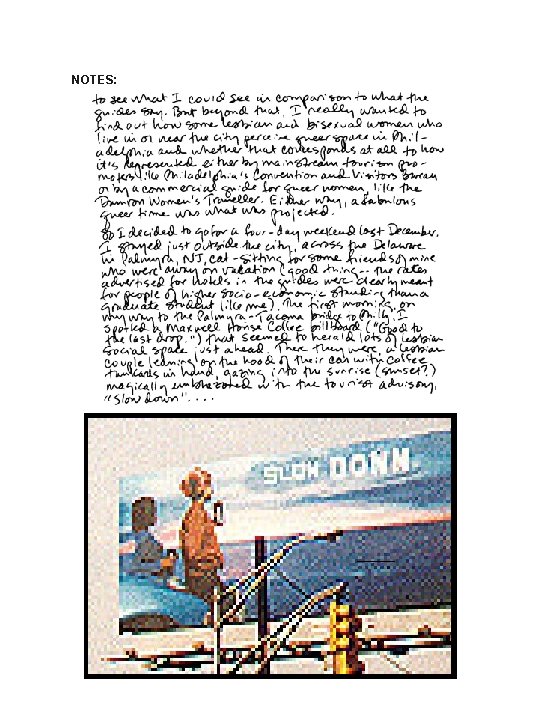 NOTES:
to see what I could see in comparison to what the
guides say. But beyond that, I really wanted to
find out how some lesbian and bisexual women who
live in or near the city perceive queer space in Phil-
adelphia and whether that corresponds at all to how
it's represented either by mainstream tourism pro-
moters like Philadelphia's Convention and Visitors Bureau
or by a commercial guide for queer women, like the
Damron Women's Traveller. Either way, a fabulous
queer time was what was projected.
So I decided to go for a four-day weekend last December.
I stayed just outside the city, across the Delaware
in Palmyra, NJ, cat-sitting for some friends of mine
who were away on vacation (good thing -- the rates
advertised for hotels in the guides were clearly meant
for people of higher socio-economic standing than a
graduate student like me). The first morning, on
my way to the Palmyra-Tacona bridge to Philly, I
spotted a Maxwell House Coffee billboard ("Good to
the last drop.") that seemed to herald lots of lesbian
social space just ahead. There they were, a lesbian
couple leaning on the hood of their car with coffee
standards in hand, gazing into the sunrise (sunset?)
magically emblazoned with the tourist advisory,
"Slow down"....
SLOW DOWN.